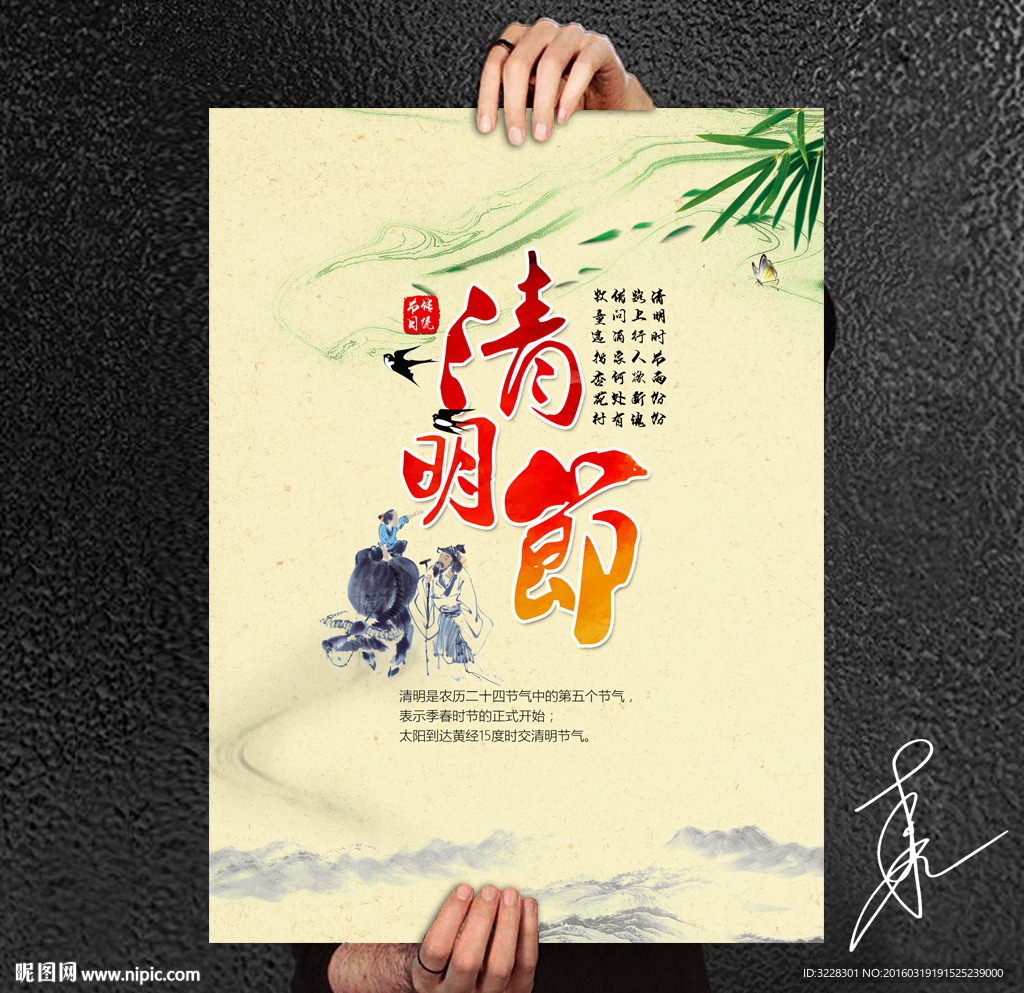 清明節
传统
节日
清明时节雨纷纷
路上行人欲断魂
借问酒家何处有
牧童遥指杏花村
清明是农历二十四节气中的第五个节气，
表示季春时节的正式开始；
太阳到达黄经15度时交清明节气。
昵图网 www.nipic.com
ID:3228301 NO:20160319191525239000